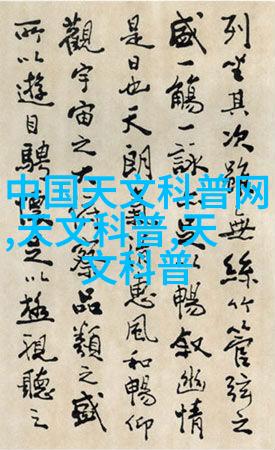 中国天文科普网
,天文科普,天
文科普
列坐其次雖無絲竹管弦之
盛一觴一詠亦足以暢敘幽情
是日也天朗氣清惠風和暢仰
觀宇宙之大俯察品類之盛
所以遊目騁懷足以極視聽之